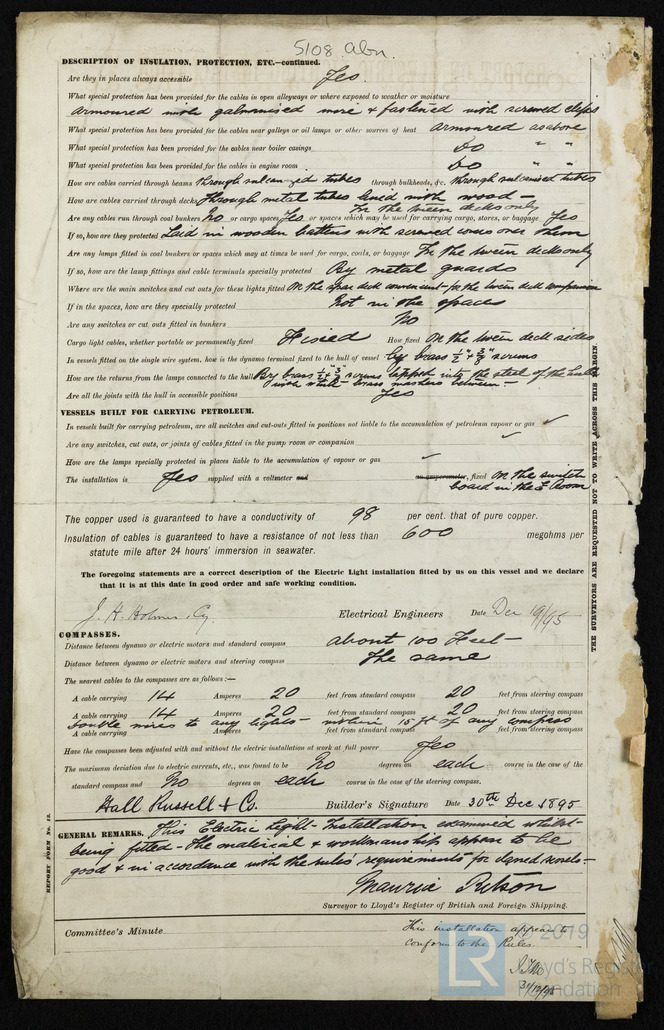 5108 Abn.
DESCRIPTION OF INSULATION, PROTECTION, ETC.—continued.
Are they in places always accessible Yes.
What special protection has been provided for the cables in open alleyways or where exposed to weather or moisture
armoured with galvanised wire & fastened with screwed clips
What special protection has been provided for the cables near galleys or oil lamps or other sources of heat armoured as above
What special protection has been provided for the cables near boiler casings Do " "
What special protection has been provided for the cables in engine room Do " "
How are cables carried through beams through vulcanized tubes through bulkheads, &c. through vulcanised tubes
How are cables carried through decks Through metal tubes lined with wood —
In the tween decks only
Are any cables run through coal bunkers No or cargo spaces Yes or spaces which may be used for carrying cargo, stores, or baggage Yes
If so, how are they protected Laid in wooden battens with screwed covers over them
Are any lamps fitted in coal bunkers or spaces which may at times be used for cargo, coals, or baggage In the tween decks only
If so, how are the lamp fittings and cable terminals specially protected By metal guards
Where are the main switches and cut outs for these lights fitted On the spar deck convenient for the tween deck companion
If in the spaces, how are they specially protected Not in the spaces
Are any switches or cut outs fitted in bunkers No
Cargo light cables, whether portable or permanently fixed Fixed How fixed On the tween deck sides
In vessels fitted on the single wire system, how is the dynamo terminal fixed to the hull of vessel by brass 1/2" & 3/8" screws
How are the returns from the lamps connected to the hull By brass 1/2" & 3/8" screws tapped into the steel of the hull
with brass washers between —
Are all the joints with the hull in accessible positions Yes
VESSELS BUILT FOR CARRYING PETROLEUM.
In vessels built for carrying petroleum, are all switches and cut-outs fitted in positions not liable to the accumulation of petroleum vapour or gas ✓
Are any switches, cut outs, or joints of cables fitted in the pump room or companion ✓
How are the lamps specially protected in places liable to the accumulation of vapour or gas ✓
The installation is Yes supplied with a voltmeter and an amperemeter, fixed On the switch
board in the E Room
The copper used is guaranteed to have a conductivity of 98 per cent. that of pure copper.
Insulation of cables is guaranteed to have a resistance of not less than 600 megohms per
statute mile after 24 hours' immersion in seawater.
The foregoing statements are a correct description of the Electric Light installation fitted by us on this vessel and we declare
that it is at this date in good order and safe working condition.
J. H. Holmes. Cy Electrical Engineers Date Dec 19/95
COMPASSES.
Distance between dynamo or electric motors and standard compass about 100 Feet —
Distance between dynamo or electric motors and steering compass The same
The nearest cables to the compasses are as follows:—
A cable carrying 14 Amperes 20 feet from standard compass 20 feet from steering compass
A cable carrying 14 Amperes 20 feet from standard compass 20 feet from steering compass
Double wires to any lights within 15 ft of any compass
A cable carrying Amperes feet from standard compass feet from steering compass
Have the compasses been adjusted with and without the electric installation at work at full power Yes
The maximum deviation due to electric currents, etc., was found to be No degrees on each course in the case of the
standard compass and No degrees on each course in the case of the steering compass.
Hall Russell & Co. Builder's Signature Date 30th Dec 1895
GENERAL REMARKS. This Electric Light Installation examined whilst
being fitted - The material & workmanship appear to be
good & in accordance with the rules' requirements for classed vessels —
Maurice Ritson
Surveyor to Lloyd's Register of British and Foreign Shipping.
Committee's Minute
This installation appears to
conform to the Rules.
31/12/95
REPORT FORM No. 13.
THE SURVEYORS ARE REQUESTED NOT TO WRITE ACROSS THIS MARGIN
LR
© 2019
Lloyd's Register
Foundation